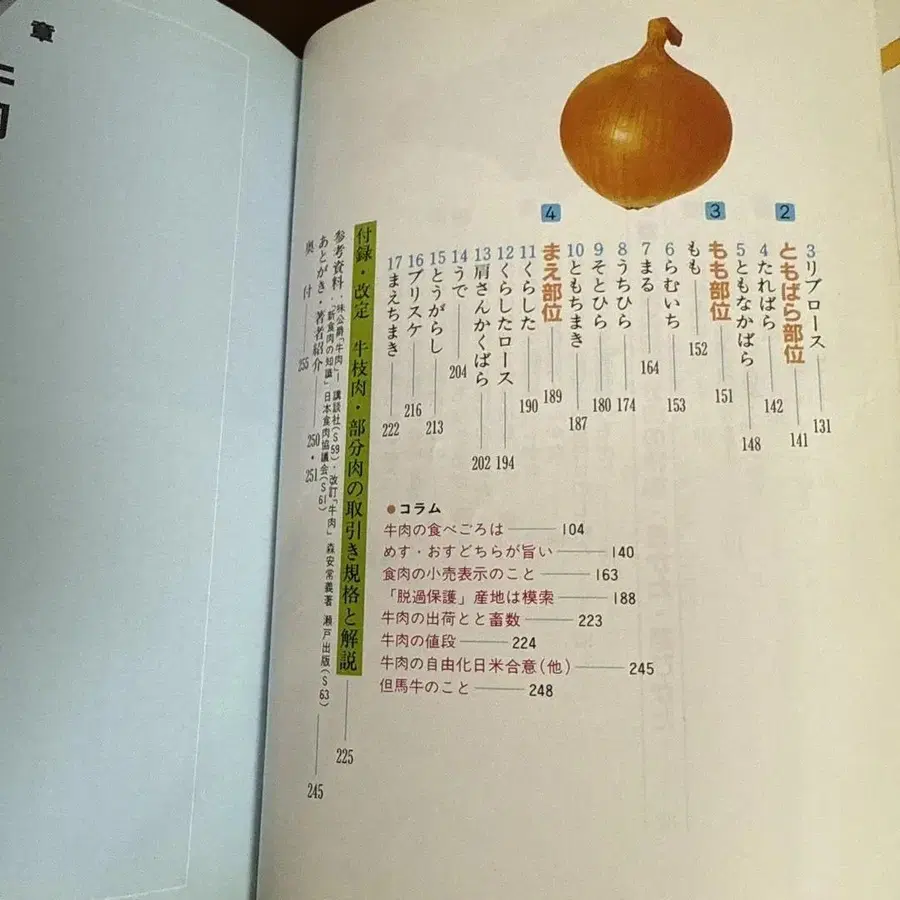 章
3 リブロース 131
2 ともばら部位 141
4 たればら 142
5 ともなかばら 148
3 もも部位 151
もも 152
6 らむいち 153
7 まる 164
8 うちひら 174
9 そとひら 180
10 ともちまき 187
4 まえ部位 189
11 くらした 190
12 くらしたロース 194
13 肩さんかくばら 202
14 うで 204
15 とうがらし 213
16 ブリスケ 216
17 まえちまき 222
付録・改定 牛枝肉・部分肉の取引き規格と解説 225
参考資料・株公爵「牛肉」ー講談社(S59)・改訂「牛肉」森安常義著 瀬戸出版(S63)
「新食肉の知識」日本食肉協議会(S61) 245
あとがき・著者紹介 250・251
奥付 255
●コラム
牛肉の食べごろは 104
めす・おすどちらが旨い 140
食肉の小売表示のこと 163
「脱過保護」産地は模索 188
牛肉の出荷とと畜数 223
牛肉の値段 224
牛肉の自由化日米合意(他) 245
但馬牛のこと 248